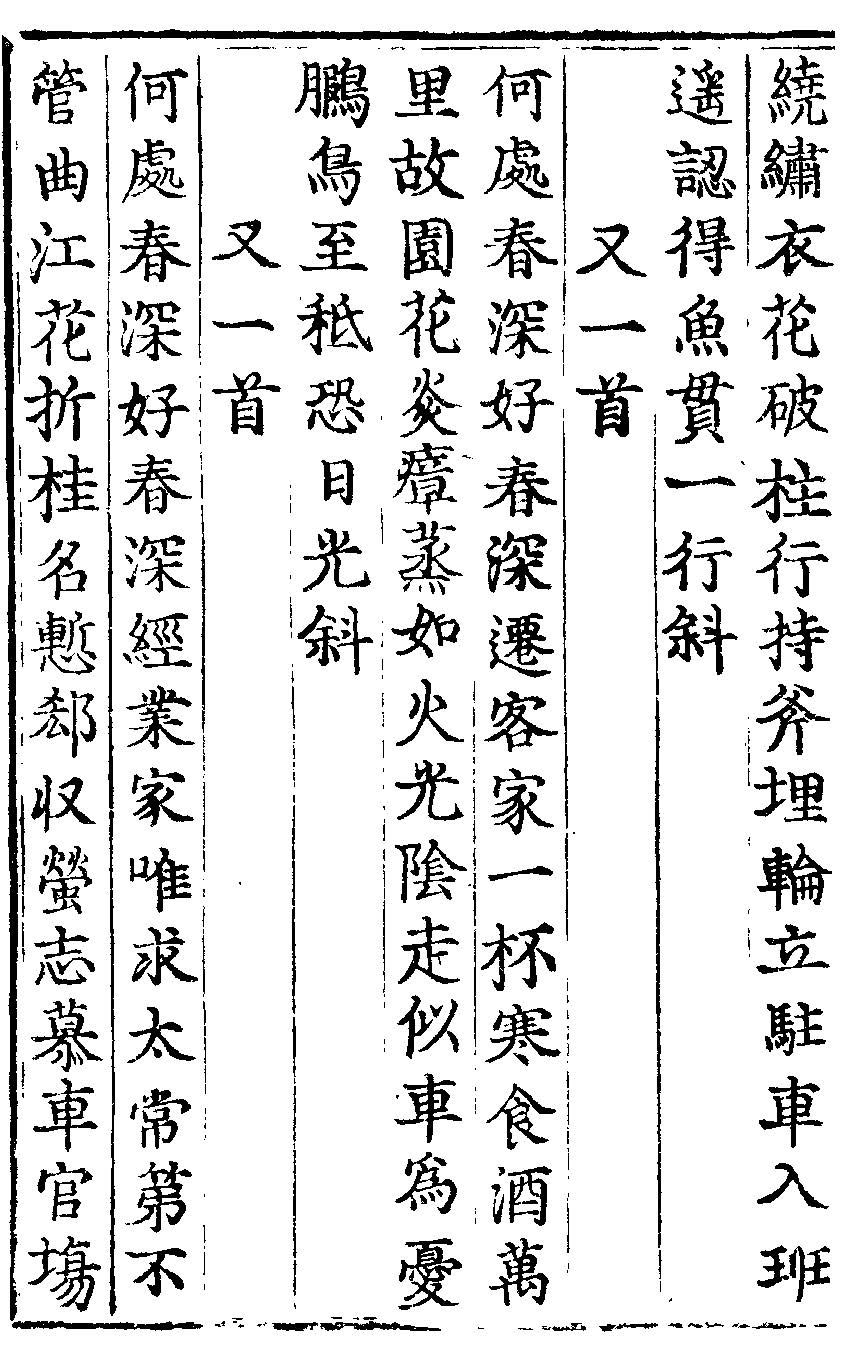 繞繡衣花破柱行持斧埋輪立駐車入班
遥認得魚貫一行斜
又一首
何處春深好春深遷客家一杯寒食酒萬
里故園花炎瘴蒸如火光陰走似車為憂
鵩鳥至秪恐日光斜
又一首
何處春深好春深經業家唯求太常第不
管曲江花折桂名慙郄収螢志慕車官塲